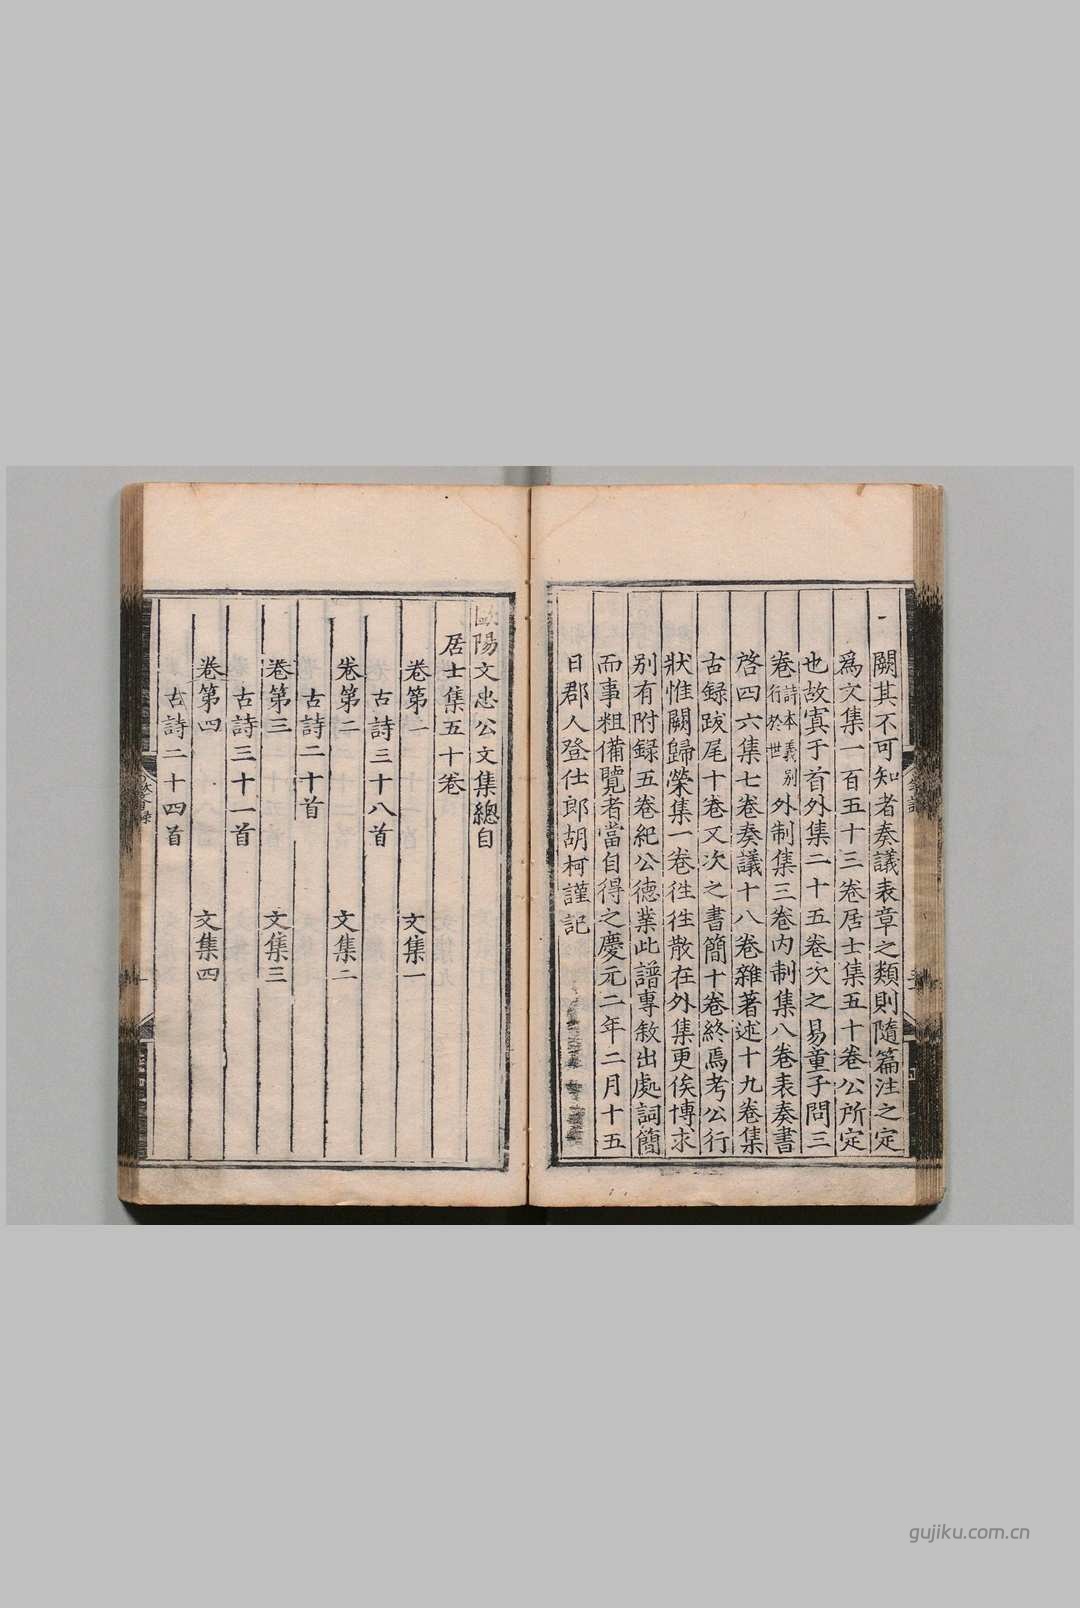 闕其不可知者奏議表章之類則隨篇注之定
爲文集一百五十三卷居士集五十卷公所定
也故寘于首外集二十五卷次之易童子問三
卷詩本義別行於世外制集三卷内制集八卷表奏書
啓四六集七卷奏議十八卷雜著述十九卷集
古録跋尾十卷又次之書簡十卷終焉考公行
狀惟闕歸榮集一卷徃徃散在外集更俟博求
别有附録五卷紀公德業此譜專敘出處詞簡
而事粗備覽者當自得之慶元二年二月十五
日郡人登仕郎胡柯謹記
歐陽文忠公文集總目
居士集五十卷
卷第一 文集一
古詩三十八首
卷第二 文集二
古詩二十首
卷第三 文集三
古詩三十一首
卷第四 文集四
古詩二十四首
gujiku.com.cn